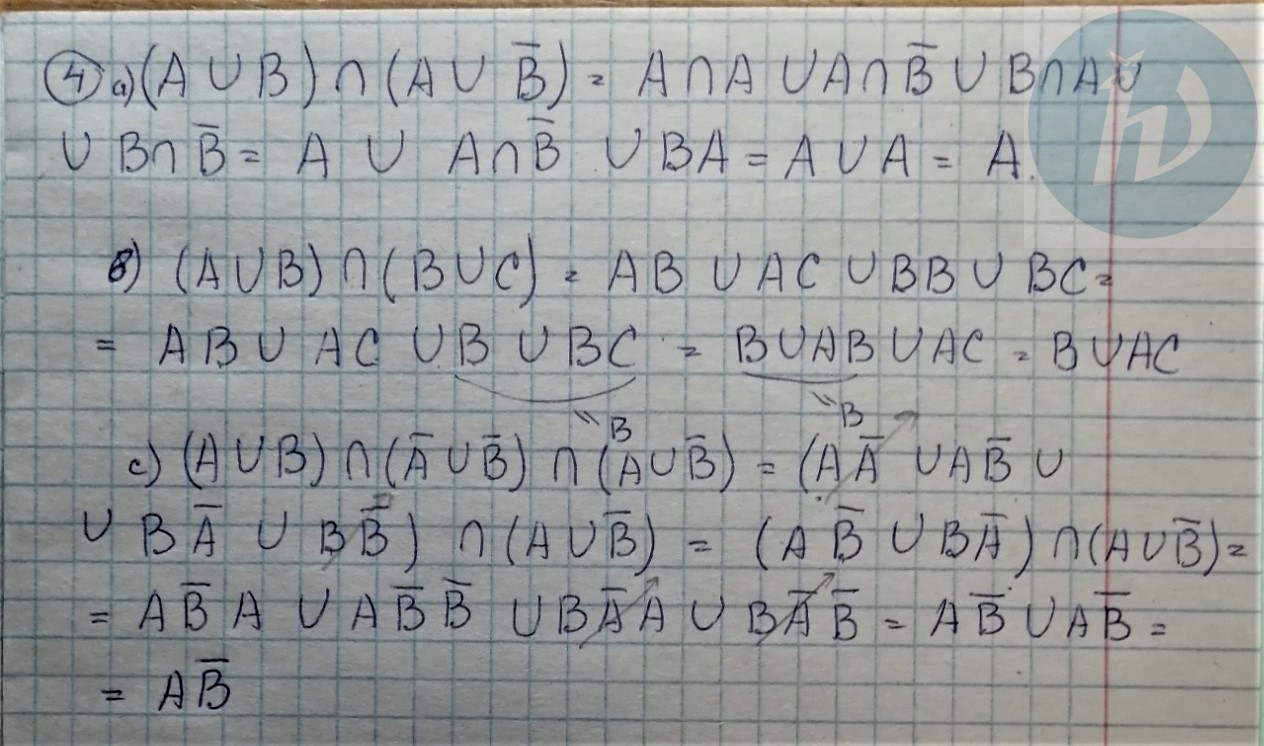 ④ a) (A ∪ B) ∩ (A ∪ B̅) = A∩A ∪ A∩B̅ ∪ B∩A ∪
∪ B∩B̅ = A ∪ A∩B̅ ∪ BA = A∪A = A.
в) (A∪B) ∩ (B∪C) = AB ∪ AC ∪ BB ∪ BC =
= AB ∪ AC ∪ B ∪ BC = B∪AB ∪ AC = B∪AC
" B " B
c) (A∪B) ∩ (A̅ ∪ B̅) ∩ (A∪B̅) = (AA̅ ∪ AB̅ ∪
∪ BA̅ ∪ BB̅) ∩ (A∪B̅) = (AB̅ ∪ BA̅) ∩ (A∪B̅) =
= AB̅A ∪ AB̅B̅ ∪ BA̅A ∪ BA̅B̅ = AB̅ ∪ AB̅ =
= AB̅